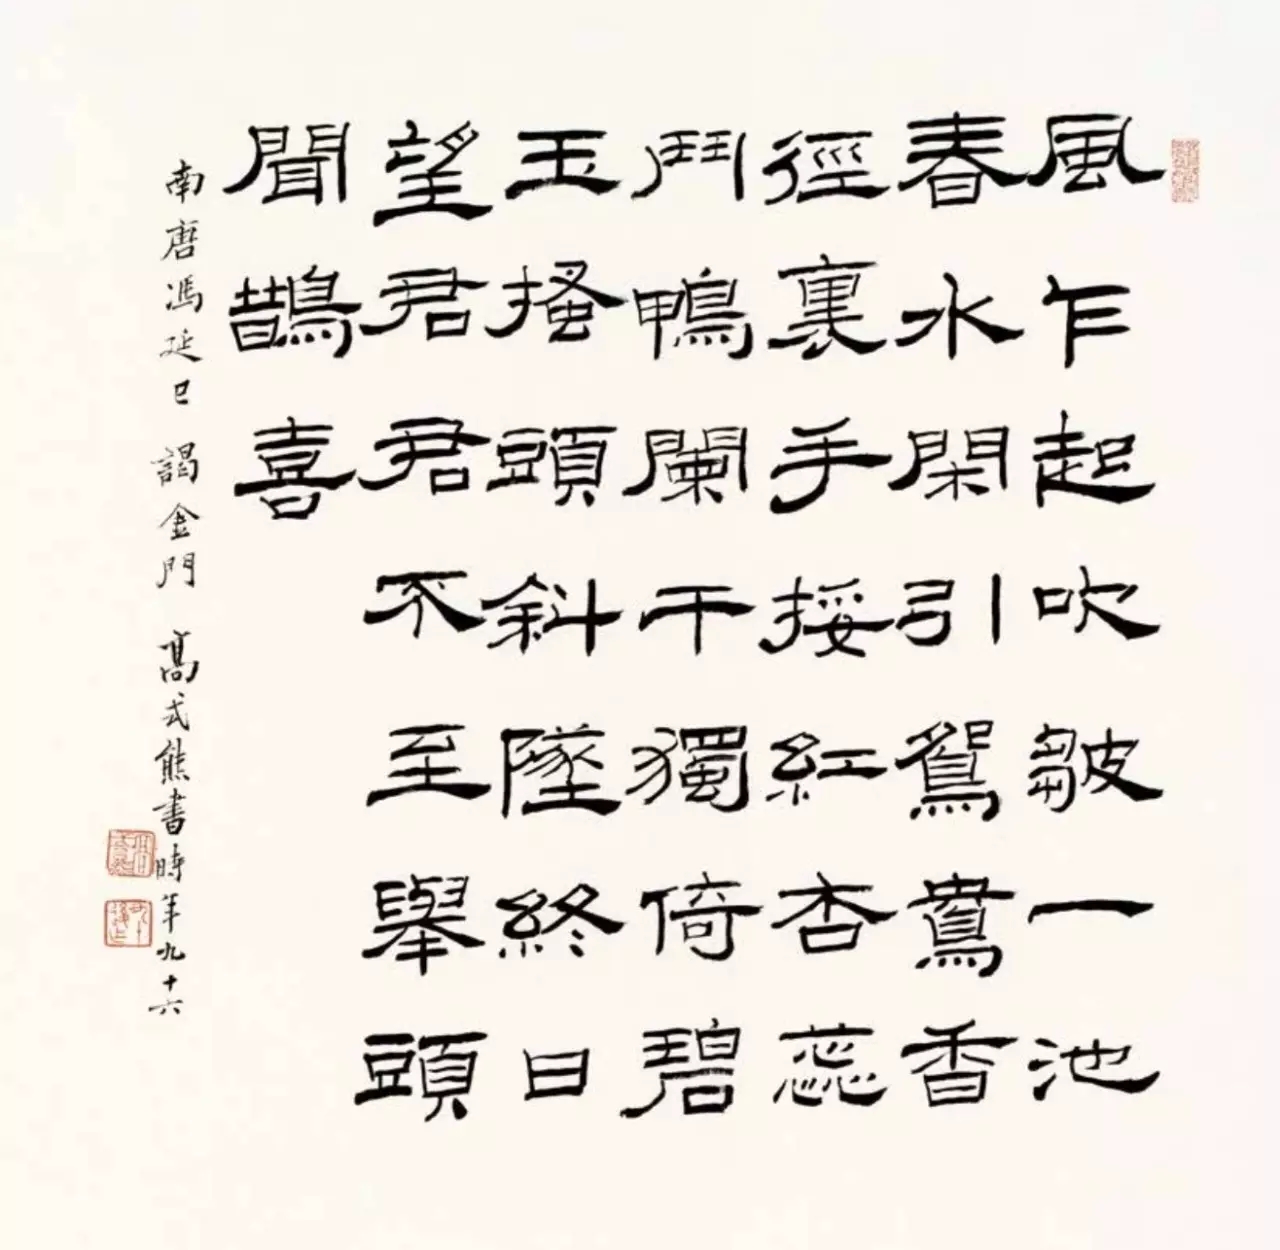 風乍起吹皺一池
春水閑引鴛鴦香
徑裏手挼紅杏蕊
鬥鴨闌干獨倚碧
玉搔頭斜墜終日
望君君不至舉頭
聞鵲喜
南唐馮延巳 謁金門 高式熊書時年九十六